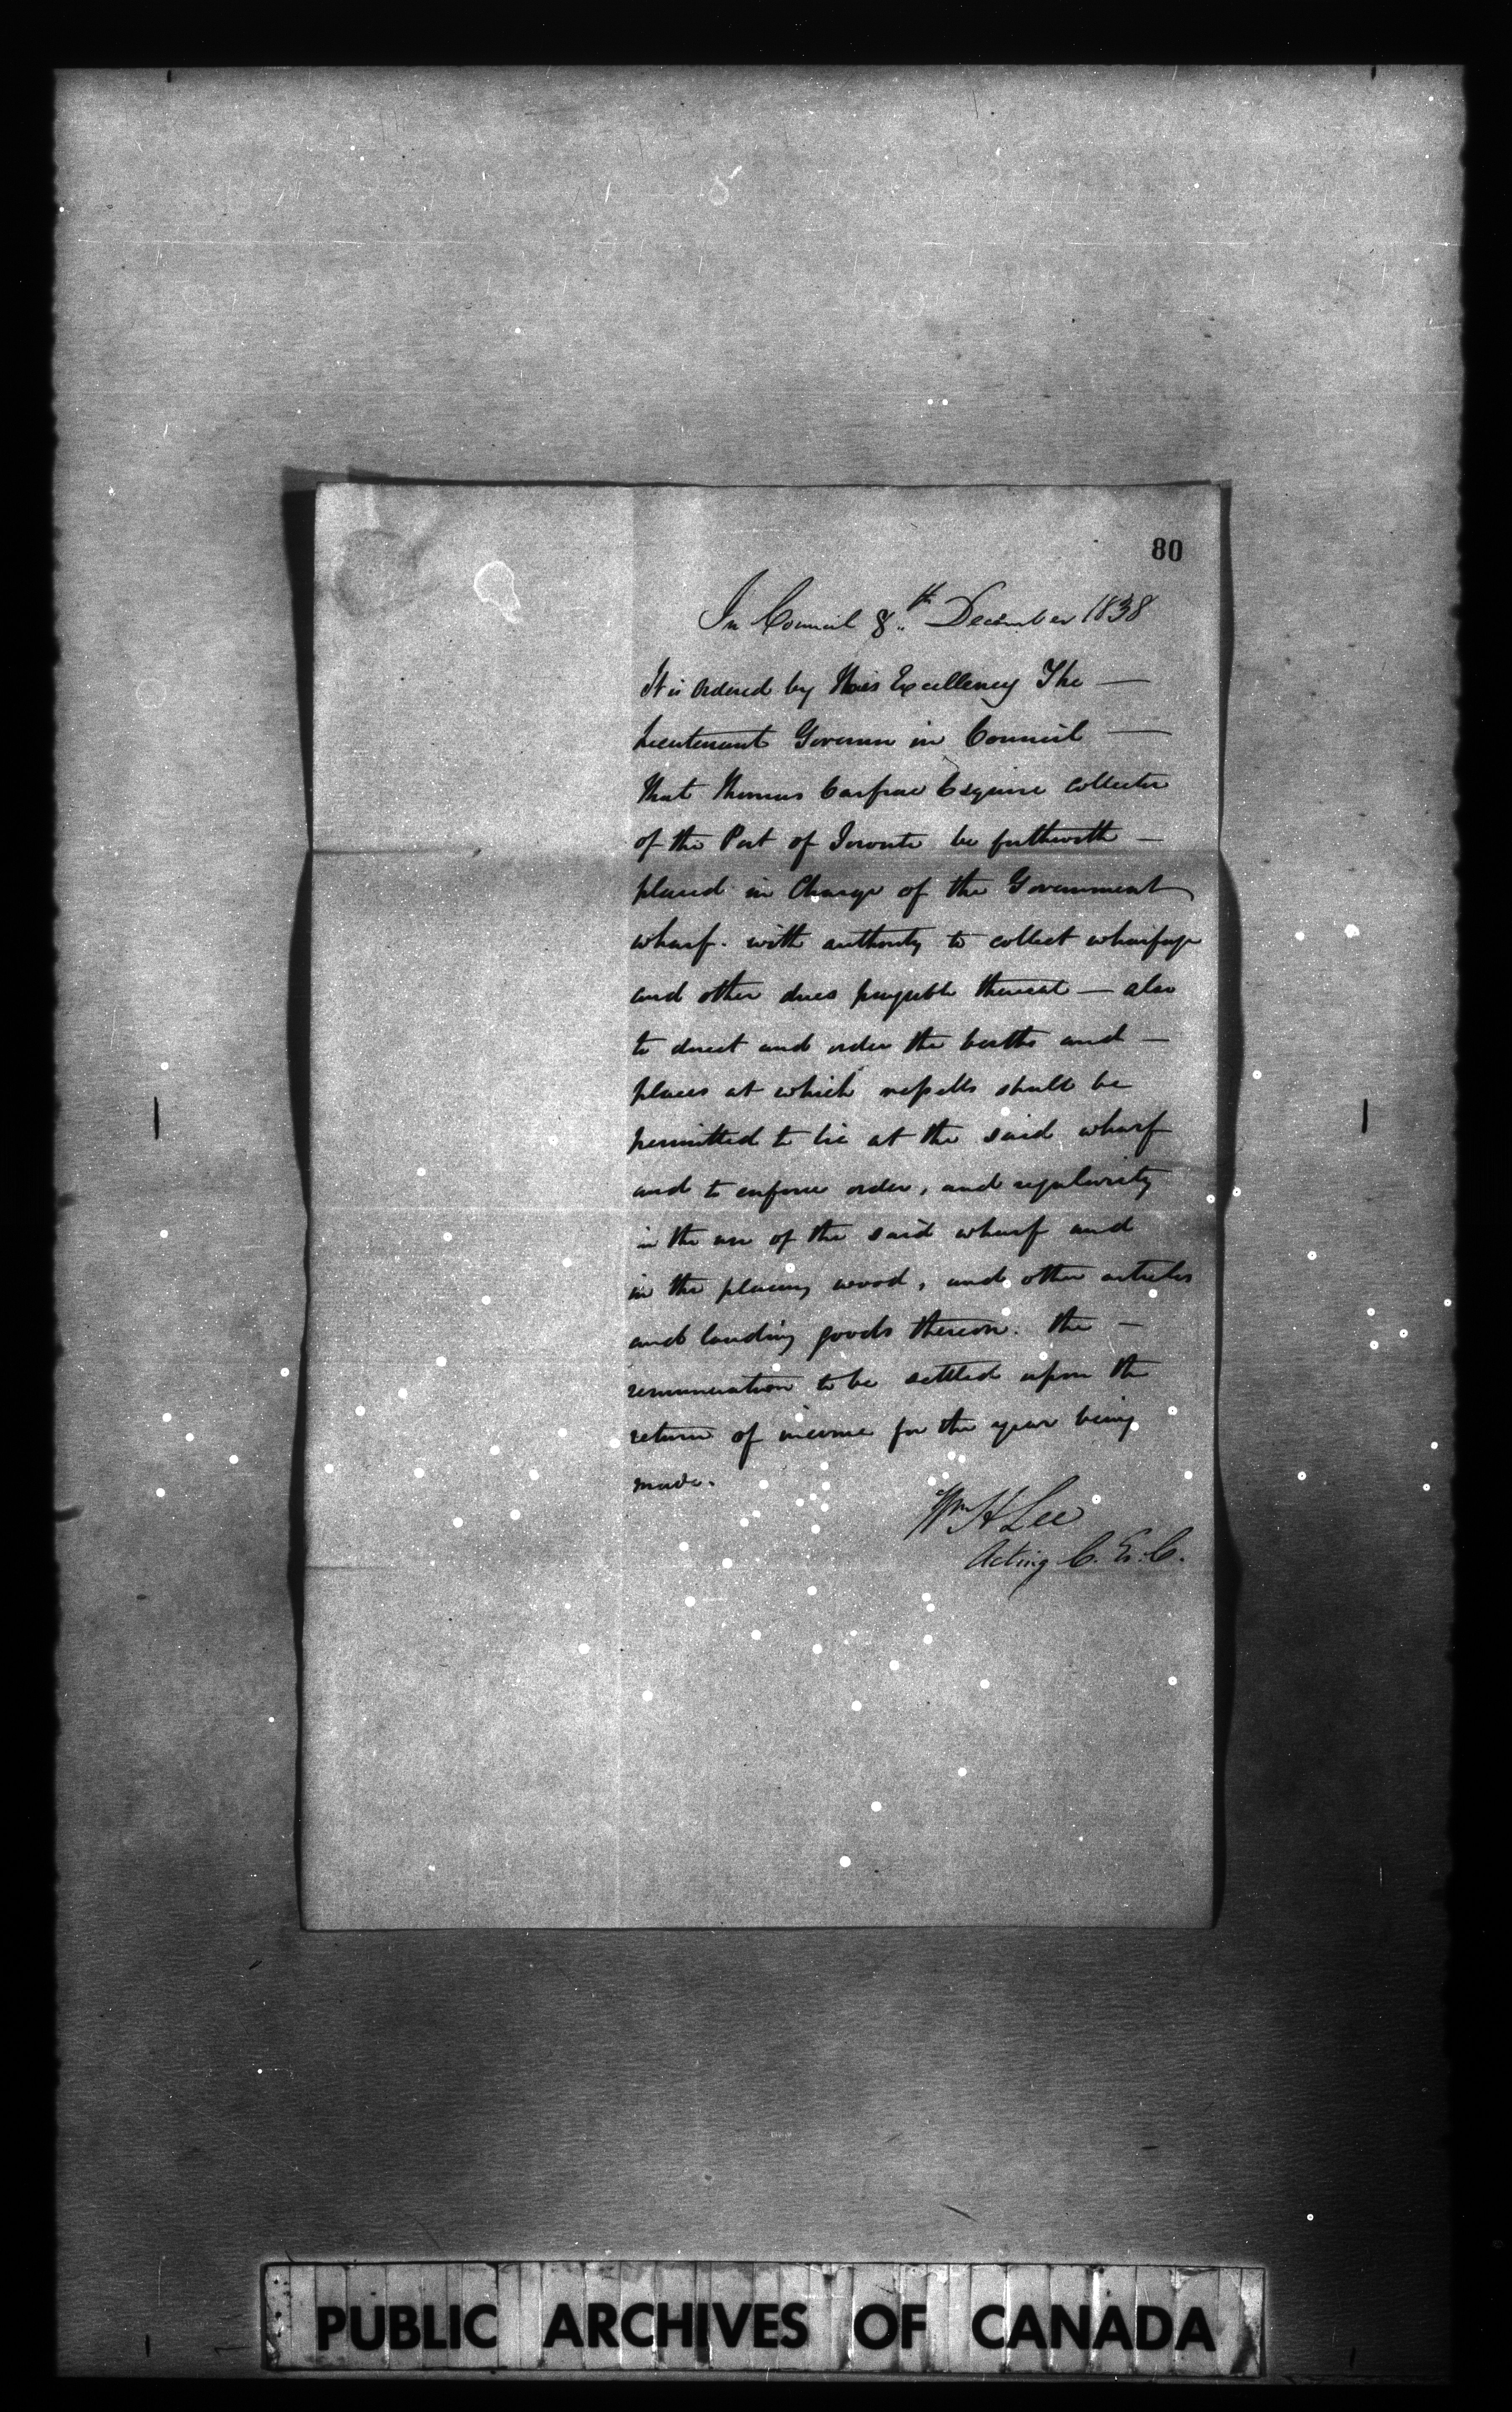 80
In Council 8th December 1838
It is Ordered by His Excellency The —
Lieutenant Governor in Council —
That Thomas Carfrae Esquire Collector
of the Port of Toronto be forthwith —
placed in Charge of the Government
wharf. with authority to collect wharfage
and other dues payable thereat — also
to direct and order the berths and —
places at which vessells shall be
permitted to lie at the said wharf
and to enforce order, and regularity
in the use of the said wharf and
in the placing wood, and other articles
and landing goods thereon. the —
remuneration to be settled upon the
return of income for the year being
made.
Wm H Lee
Acting C. Ex. C.
PUBLIC ARCHIVES OF CANADA